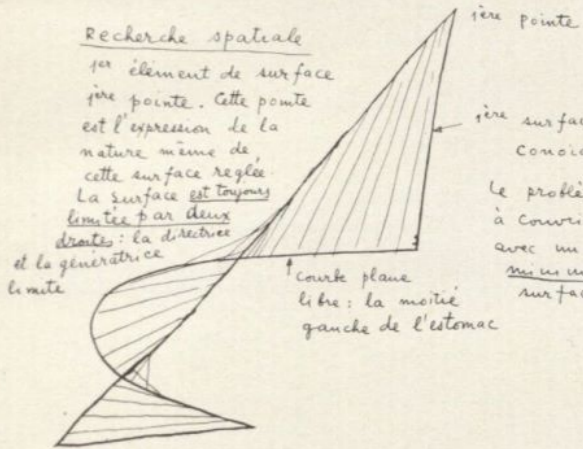 Recherche spatiale
1er élément de surface
1ère pointe. Cette pointe
est l'expression de la
nature même de
cette surface reglée.
La surface est toujours
limitée par deux
droites: la directrice
et la génératrice
limite
1ère pointe
1ère
Le
à couvrir
avec un
courbe plane
libre: la moitié
gauche de l'estomac